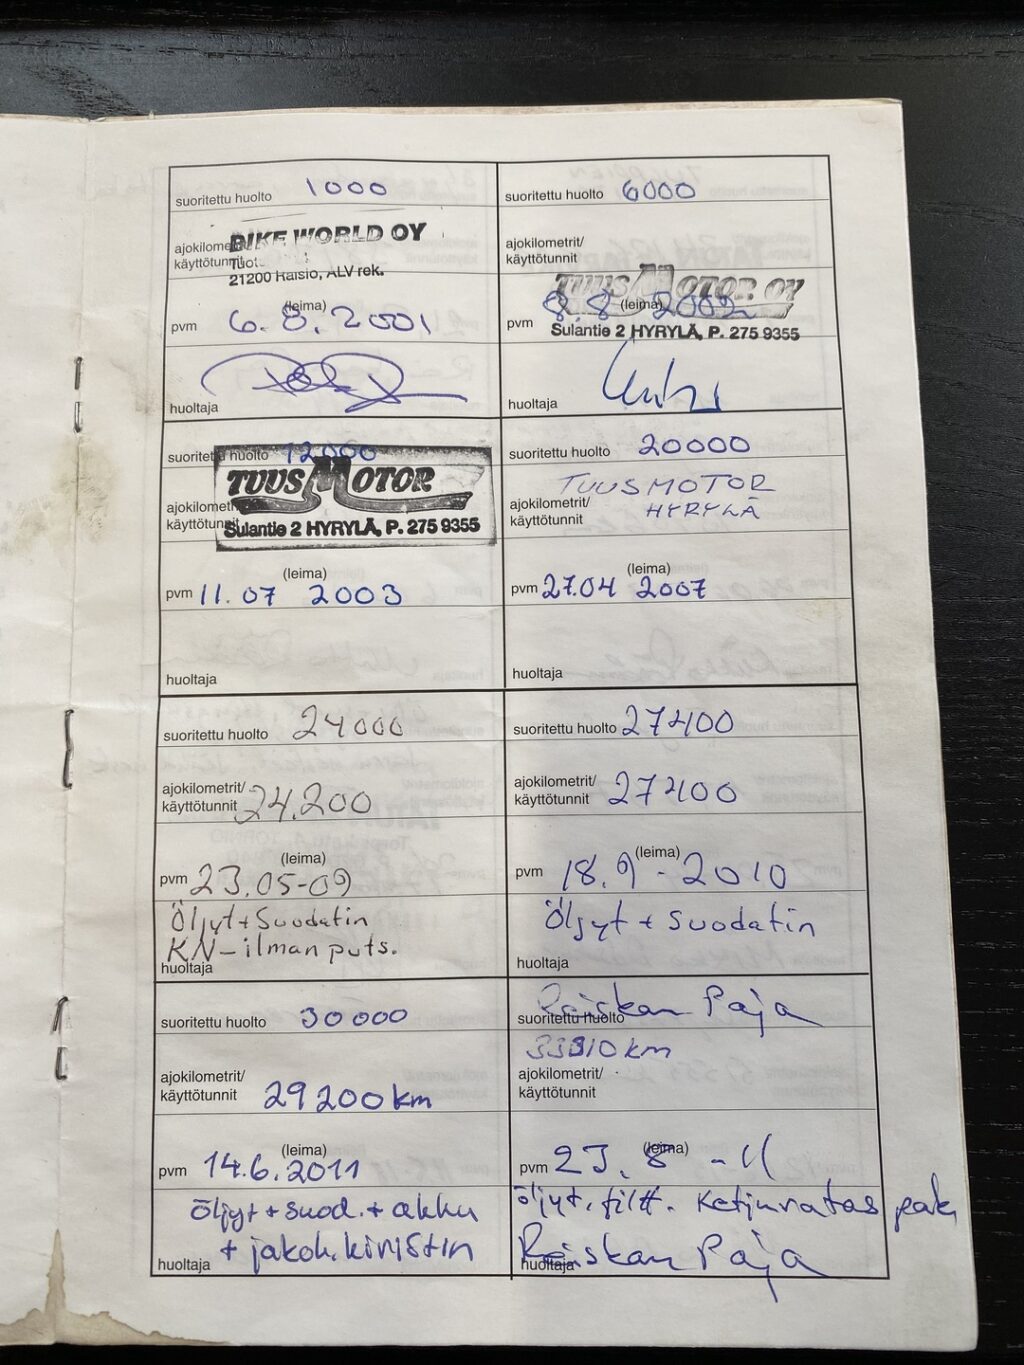 suoritettu huolto 1000
BIKE WORLD OY
ajokilometrit/
käyttötunnit
21200 Raisio, ALV rek.
(leima)
pvm 6.8.2001
huoltaja
suoritettu huolto 6000
ajokilometrit/
käyttötunnit
TUUSMOTOR OY
(leima)
pvm 8.8. 2002
Sulantie 2 HYRYLÄ, P. 275 9355
huoltaja
suoritettu huolto 12000
TUUSMOTOR
ajokilometrit/
käyttötunnit
Sulantie 2 HYRYLÄ, P. 275 9355
(leima)
pvm 11.07 2003
huoltaja
suoritettu huolto 20000
TUUSMOTOR
ajokilometrit/
HYRYLÄ
käyttötunnit
(leima)
pvm 27.04 2007
huoltaja
suoritettu huolto 24000
ajokilometrit/
käyttötunnit 24.200
(leima)
pvm 23.05-09
Öljyt + Suodatin
KN-ilman puts.
huoltaja
suoritettu huolto 27400
ajokilometrit/
käyttötunnit 27400
(leima)
pvm 18.9-2010
Öljyt + Suodatin
huoltaja
suoritettu huolto 30000
ajokilometrit/
käyttötunnit 29200km
(leima)
pvm 14.6.2011
öljyt + suod. + akku
+ jakoh.kiristin
huoltaja
Raiskan Paja
suoritettu huolto
33310km
ajokilometrit/
käyttötunnit
(leima)
pvm 8 -11
öljyt. filtt. Ketjuratas pak
Raiskan Paja
huoltaja